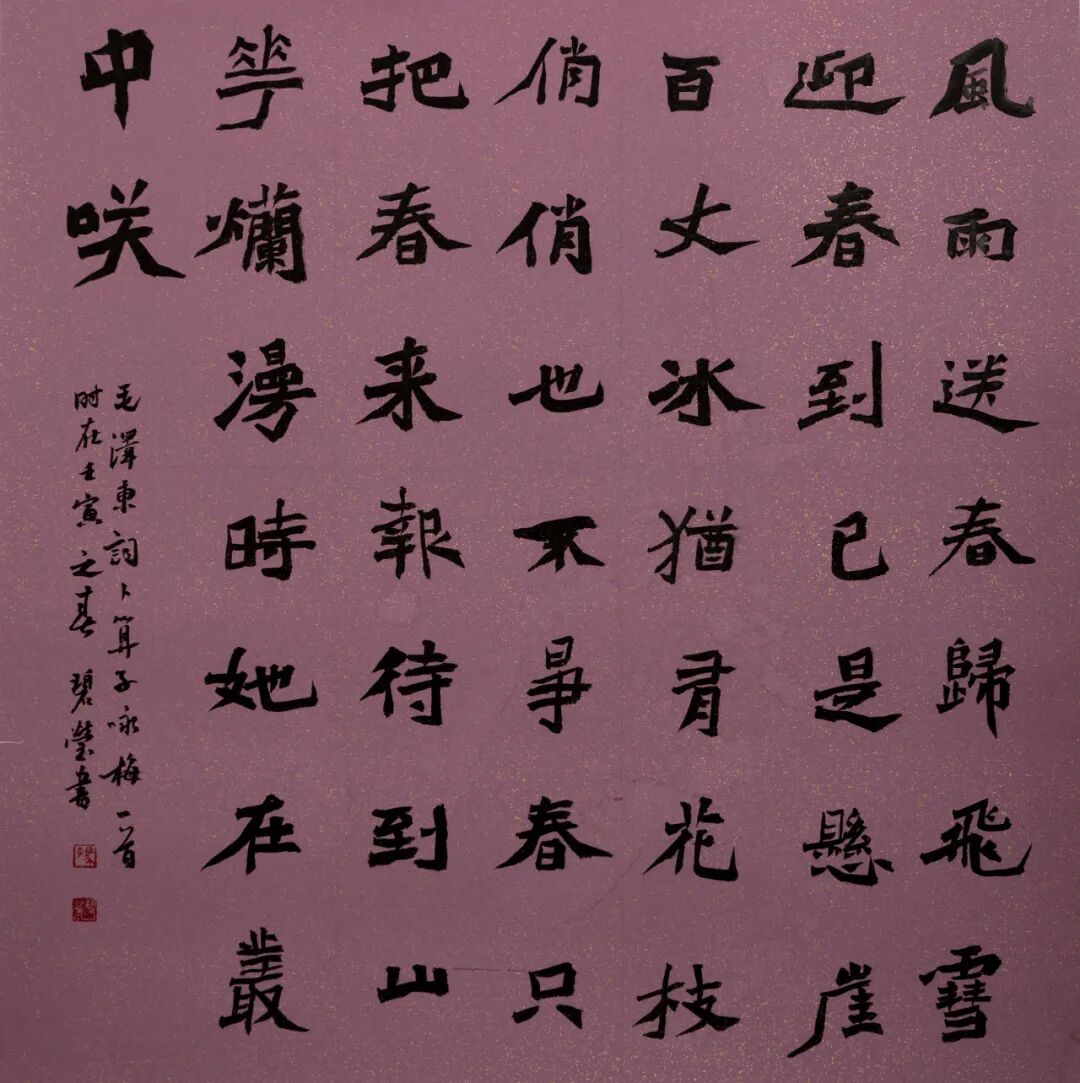 風雨送春歸飛雪
迎春到已是懸崖
百丈冰猶有花枝
俏俏也不爭春只
把春来報待到山
華爛漫時她在叢
中咲
毛澤東詞卜算子咏梅一首
时在壬寅之春 碧瑩書